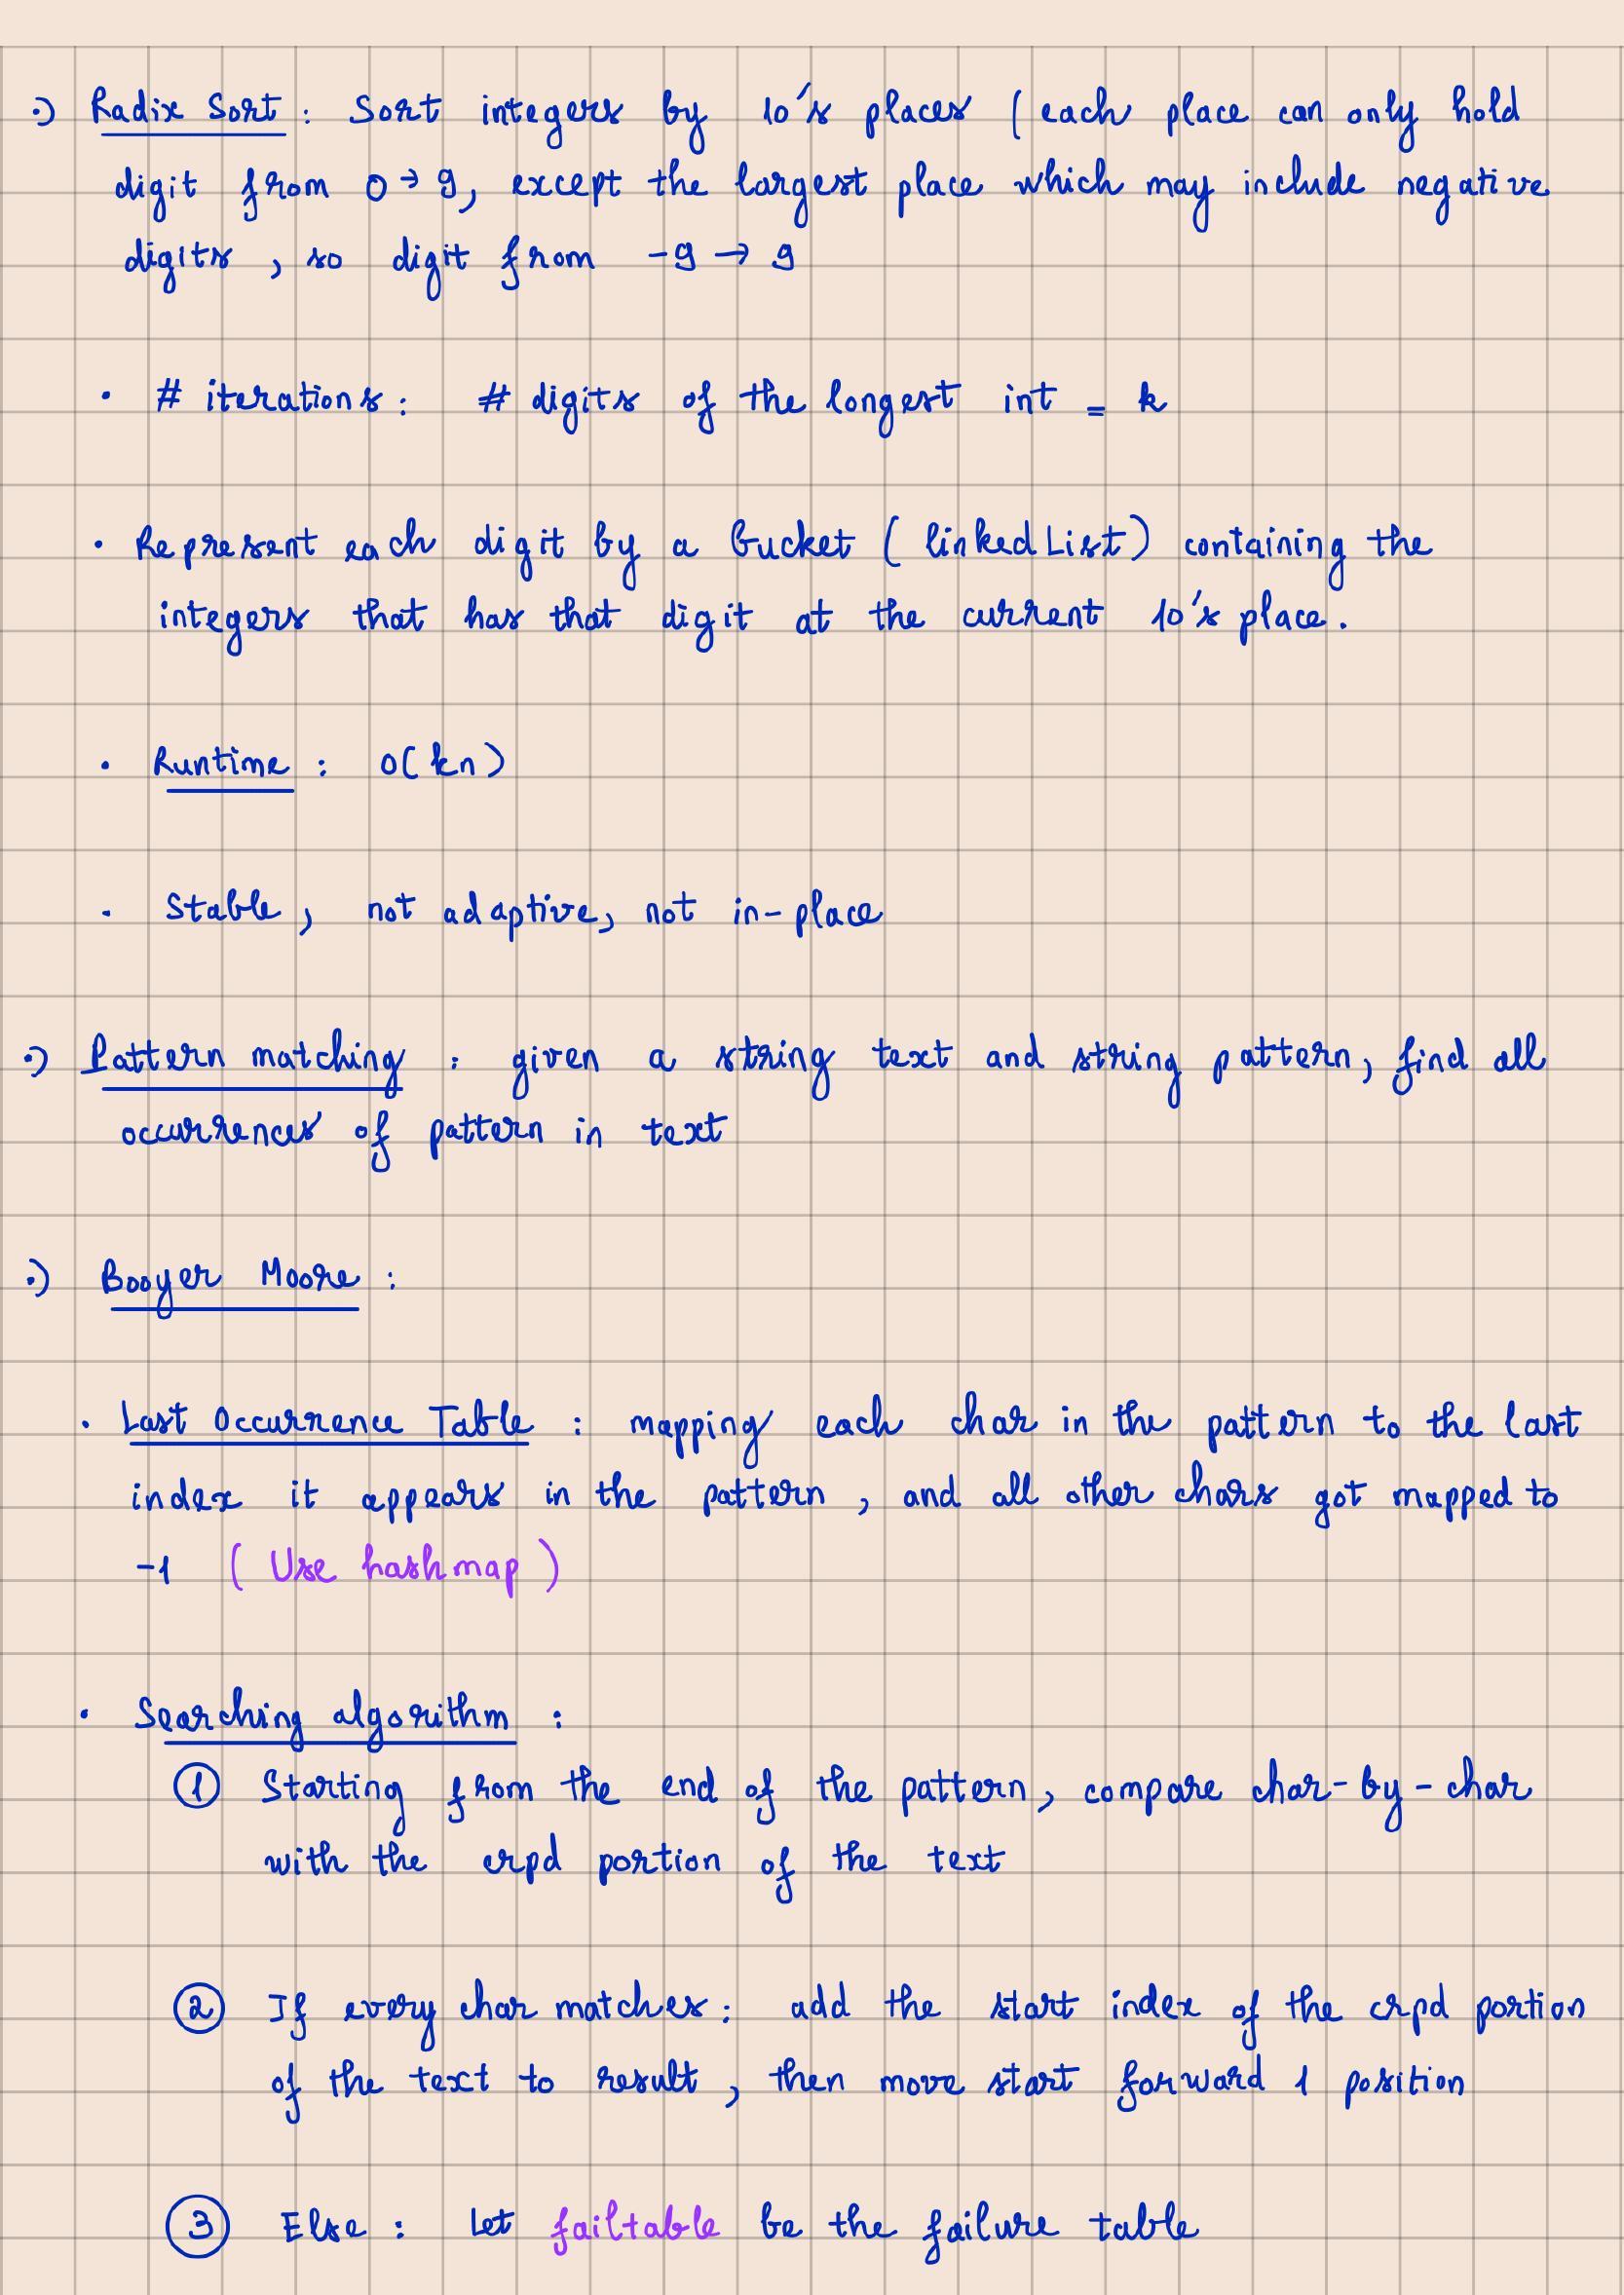 ·) Radix Sort : Sort integers by 10's places ( each place can only hold
digit from 0 → 9, except the largest place which may include negative
digits , so digit from -9 → 9
· # iterations : # digits of the longest int = k
· Represent each digit by a bucket ( linked List ) containing the
integers that has that digit at the current 10's place.
· Runtime : O( kn )
· Stable , not adaptive, not in-place
·) Pattern matching : given a string text and string pattern, find all
occurrences of pattern in text
·) Booyer Moore :
· Last Occurrence Table : mapping each char in the pattern to the last
index it appears in the pattern , and all other chars got mapped to
-1 ( Use hashmap )
· Searching algorithm :
① Starting from the end of the pattern, compare char-by-char
with the crpd portion of the text
② If every char matches : add the start index of the crpd portion
of the text to result , then move start forward 1 position
③ Else : Let failtable be the failure table